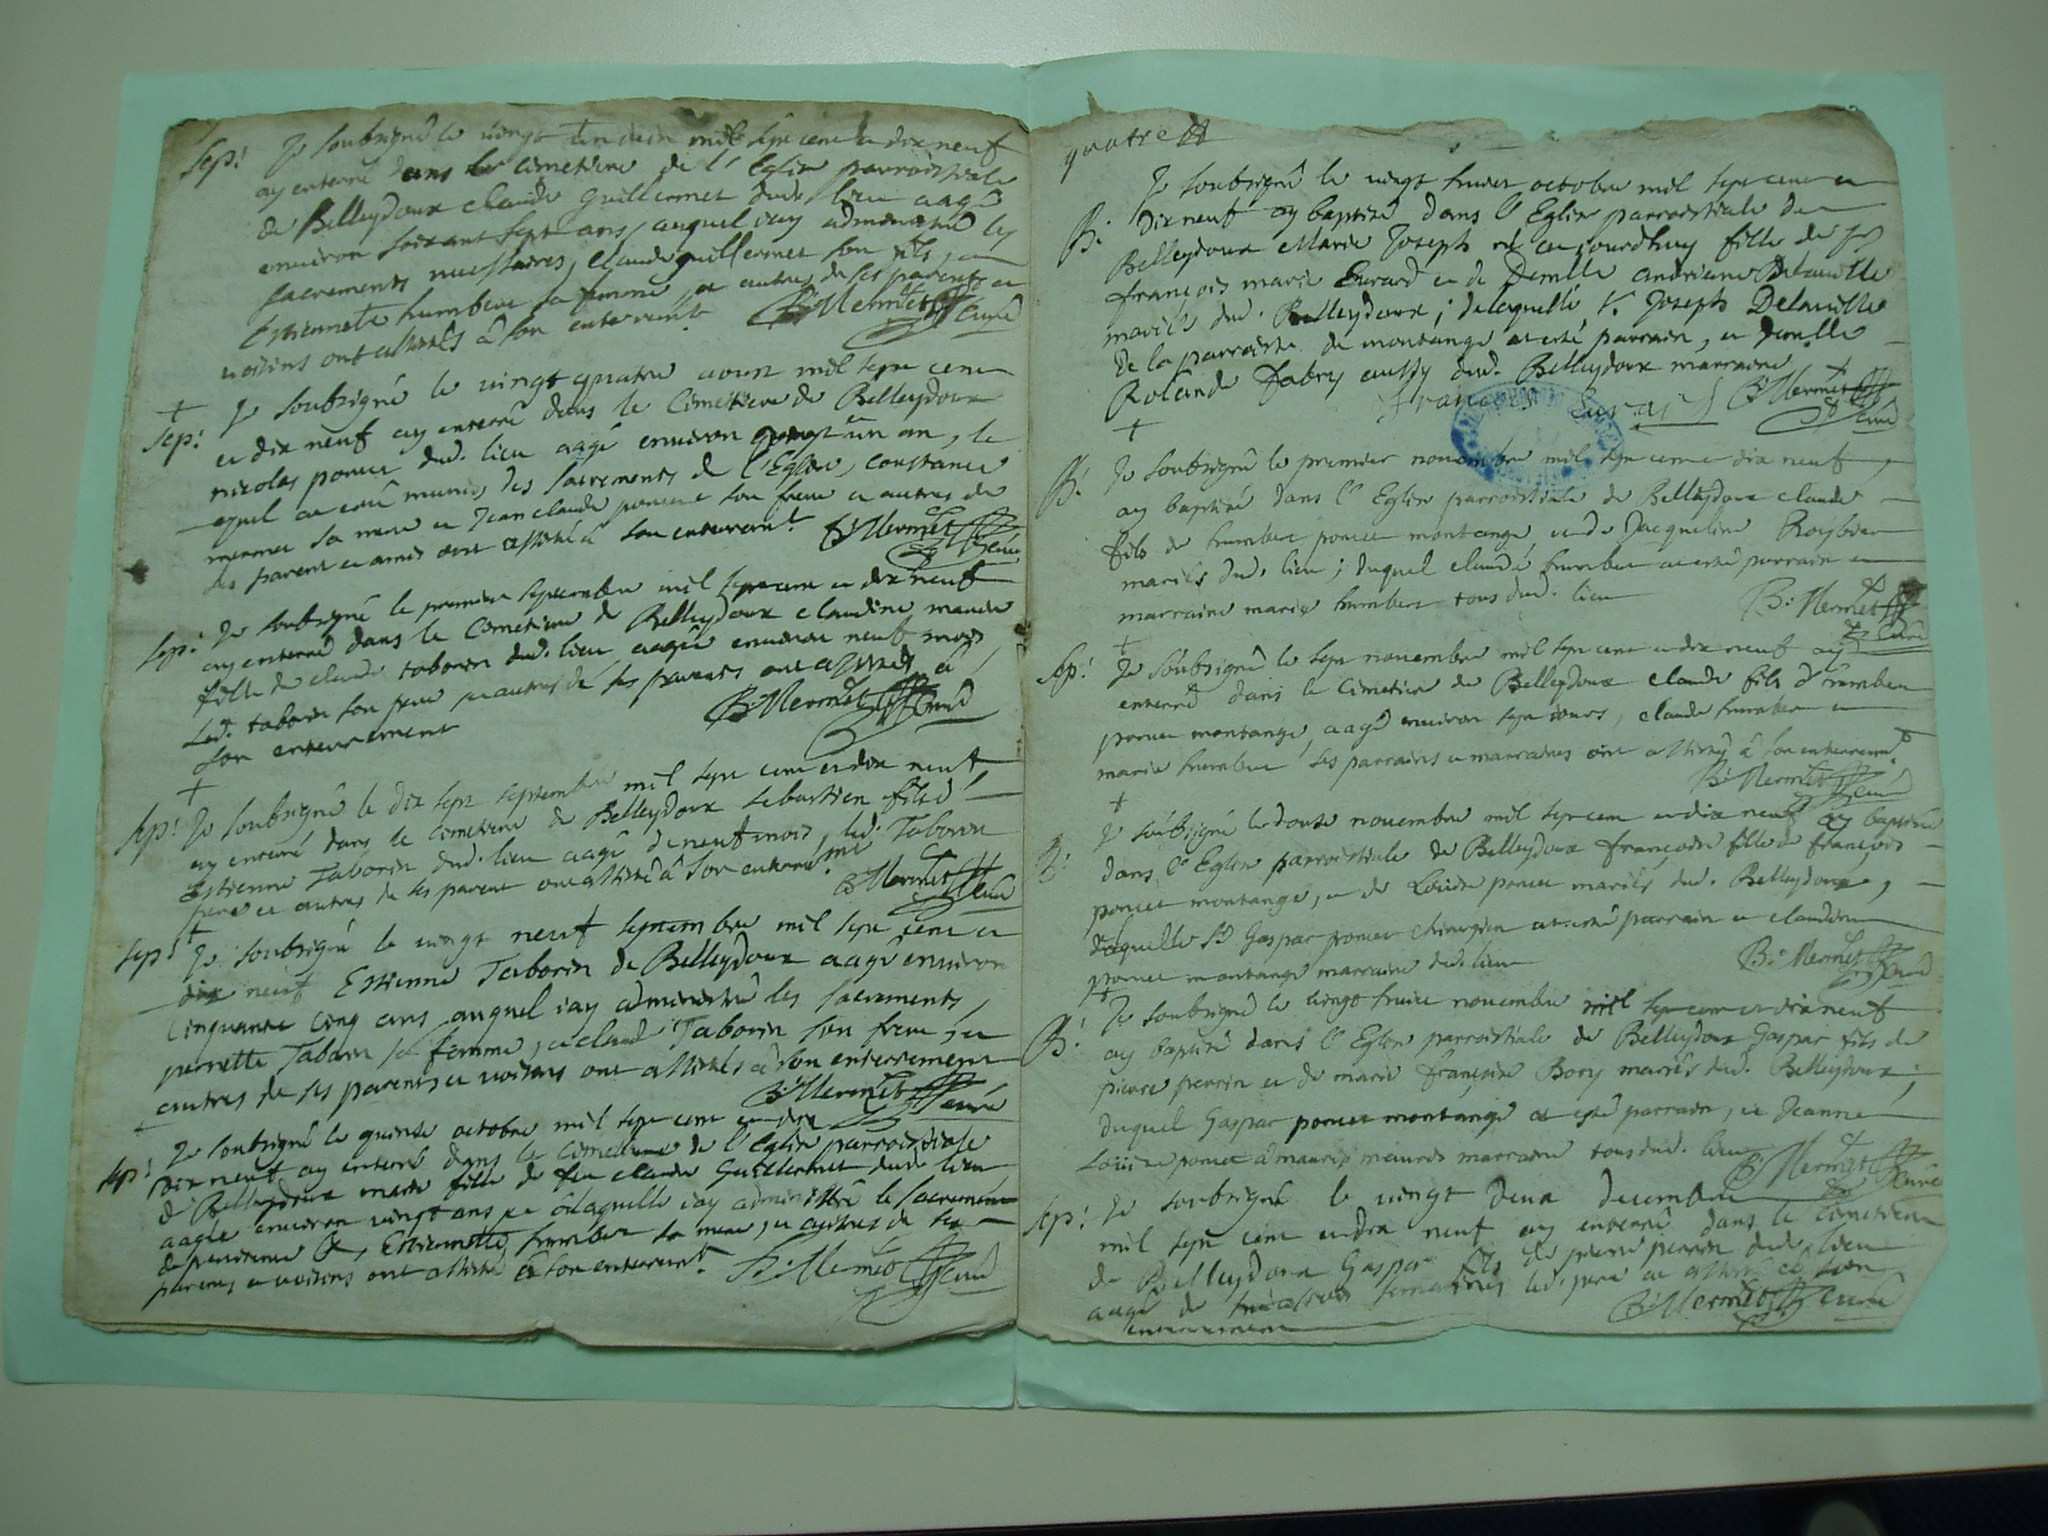 Sep! Je soubsigné le vingt un juin mil sept cent et dix neuf
ay enterré dans le Cimetiere de l'Eglise parroissiale
de Belleydoux claude guillermet dud. lieu aagé
environ soixant sept ans, auquel iay administré les
sacrements necessaires, claude guillermet son fils, et
Estiennete humbert sa femme, et autres de ses parents et
voisins ont assistés à son enterremt B: Mermet Curé
+ Je soubsigné le vingt quatre aoust mil sept cent
Sep: et dix neuf ay enterré dans le Cimetiere de Belleydoux
nicolas poncet dud. lieu aagé environ vingt un an, le
quel a esté munis des sacrements de l'Eglise, constance
mermet sa mere et Jean claude poncet son frere et autres de
ses parent et amis ont assisté à son enterremt. B: Mermet Curé
Sep: Je soubsigné le premier septembre mil sept cent et dix neuf
ay enterré dans le Cimetiere de Belleydoux claudine, marie
fille de claude taborin dud. lieu aagée environ neuf mois
led. taborin son pere et autres de ses parents ont assistés à
son enterrement B: Mermet Curé
+
Sep! Je soubsigné le dix sept septembre mil sept cent et dix neuf
ay enterré dans le cimetiere de Belleydoux sebastien fils d'
Estienne Taborin dud. lieu aagé de neuf mois, led. Taborin
pere et autres de ses parent ont assisté à son enterremt B: Mermet Curé
+
Sep! Je soubsigné le vingt neuf septembre mil sept cent et
dix neuf Estienne Taborin de Belleydoux aagé environ
Cinquante cinq ans auquel iay administré les sacrements,
perrette Tabarin sa femme, et claud Taborin son frere, et
autres de ses parents et voisins ont assistés à son enterrement
+ B: Mermet Curé
Sep! Je soubsigné le quinse octobre mil sept cent et dix
dix neuf ay enterré dans le cimetiere de l'Eglise parroissiale
de Belleydoux marie fille de feu claude Guillermet dud. lieu
aagée environ vingt ans et à laquelle iay administré le sacrement
de penitence &, Estiennette humbert sa mere, et autres de ses
parens et voisins ont assisté à son enterremt. B: Mermet Curé
quatre
Je soubsigné le vingt huict octobre mil sept cent et
B: Dix neuf ay baptisé dans l'Eglise parroissiale de
Belleydoux Marie Joseph née ce jourdhuy fille de Sr
françois marie Evrard et de Demlle andrienne Delaville
mariés dud. Belleydoux; delaquelle Sr. Joseph Delaville
De la parroisse de montange at esté parrain, et demlle
Rolande fabry aussy dud. Belleydoux marraine
+ françois Evrard B: Mermet Curé
B: Je soubsigné le premier novembre mil sept cent dix neuf
ay baptisé dans l'Eglise parroissiale de Belleydoux claude
fils de humbert poncet montange et de Jacqueline
mariés dud. lieu; duquel claude humbert at esté parrain et
marraine marie humbert tous dud. lieu B: Mermet Curé
+
Sep! Je soubsigné le sept novembre mil sept cent et dix neuf ay
enterré dans le Cimetiere de Belleydoux claude fils d'humbert
poncet montange, aagé environ sept iours, claude humbert et
marie humbert ses parrains et marraines ont assistés à son enterremt.
+ B: Mermet Curé
Je soubsigné le douse novembre mil sept cent et dix neuf ay baptisé
B: dans l'Eglise parroissiale de Belleydoux françoise fille de françois
poncet montange, et de Louise poncet mariés dud. Belleydoux,
delaquelle Sr Gaspar poncet chirurgien at esté parrain et claudine
poncet montange marraine dud. lieu B: Mermet Curé
+
B: Je soubsigné le vingt huict novembre mil sept cent et dix neuf
ay baptisé dans l'Eglise parroissiale de Belleydoux Gaspar fils de
pierre perrin et de marie françoise Bory mariés dud. Belleydoux;
duquel Gaspar poncet montange at esté parrain, et Jeanne
Louise poncet marraine tous dud. lieu B: Mermet Curé
Sep! Je soubsigné le vingt deux decembre
mil sept cent et dix neuf ay enterré dans le Cimetiere
de Belleydoux Gaspar fils de pierre perrin dud. lieu
aagé de semaines led. pere at assisté à son
enterrement B: Mermet Curé